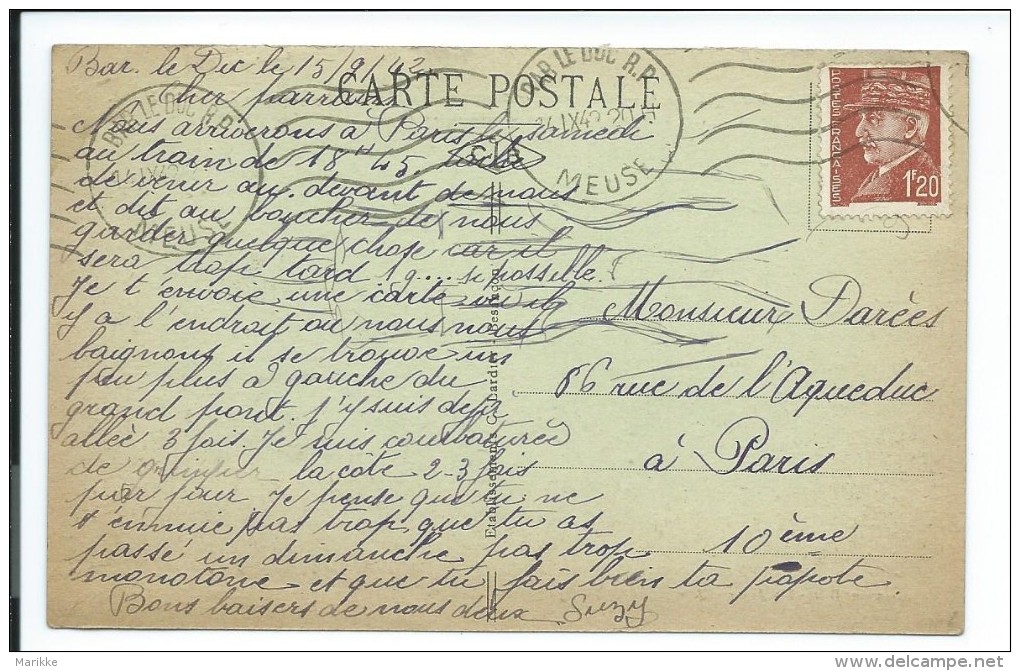 Bar. le Duc le 15/9/42
CARTE POSTALE
Cher parrain
Nous arriverons à Paris le samedi
au train de 18H45. tache
de venir au. devant de nous
et dit au boucher de nous
garder quelque chose car il
sera trop tard 19... si possible.
Je t'envoie une carte où il
y a l'endroit ou nous nous
baignons il se trouve un
peu plus à gauche du
grand pont. j'y suis déjà
allée 3 fois. Je suis courbaturée
de grimper la côte 2-3 fois
par jour Je pense que tu ne
t'ennuie pas trop, que tu as
passé un dimanche pas trop
monotone et que tu fais bien ta popote
Bons baisers de nous deux Suzy
Monsieur Darées
86 rue de l'Aqueduc
à Paris
10ème
BAR LE DUC R.P.
MEUSE
BAR LE DUC R.P.
14 IX 42
MEUSE
POSTES FRANCAISES
1F20
Etablissements C. Dardi
Marikke
www.delcampe.net